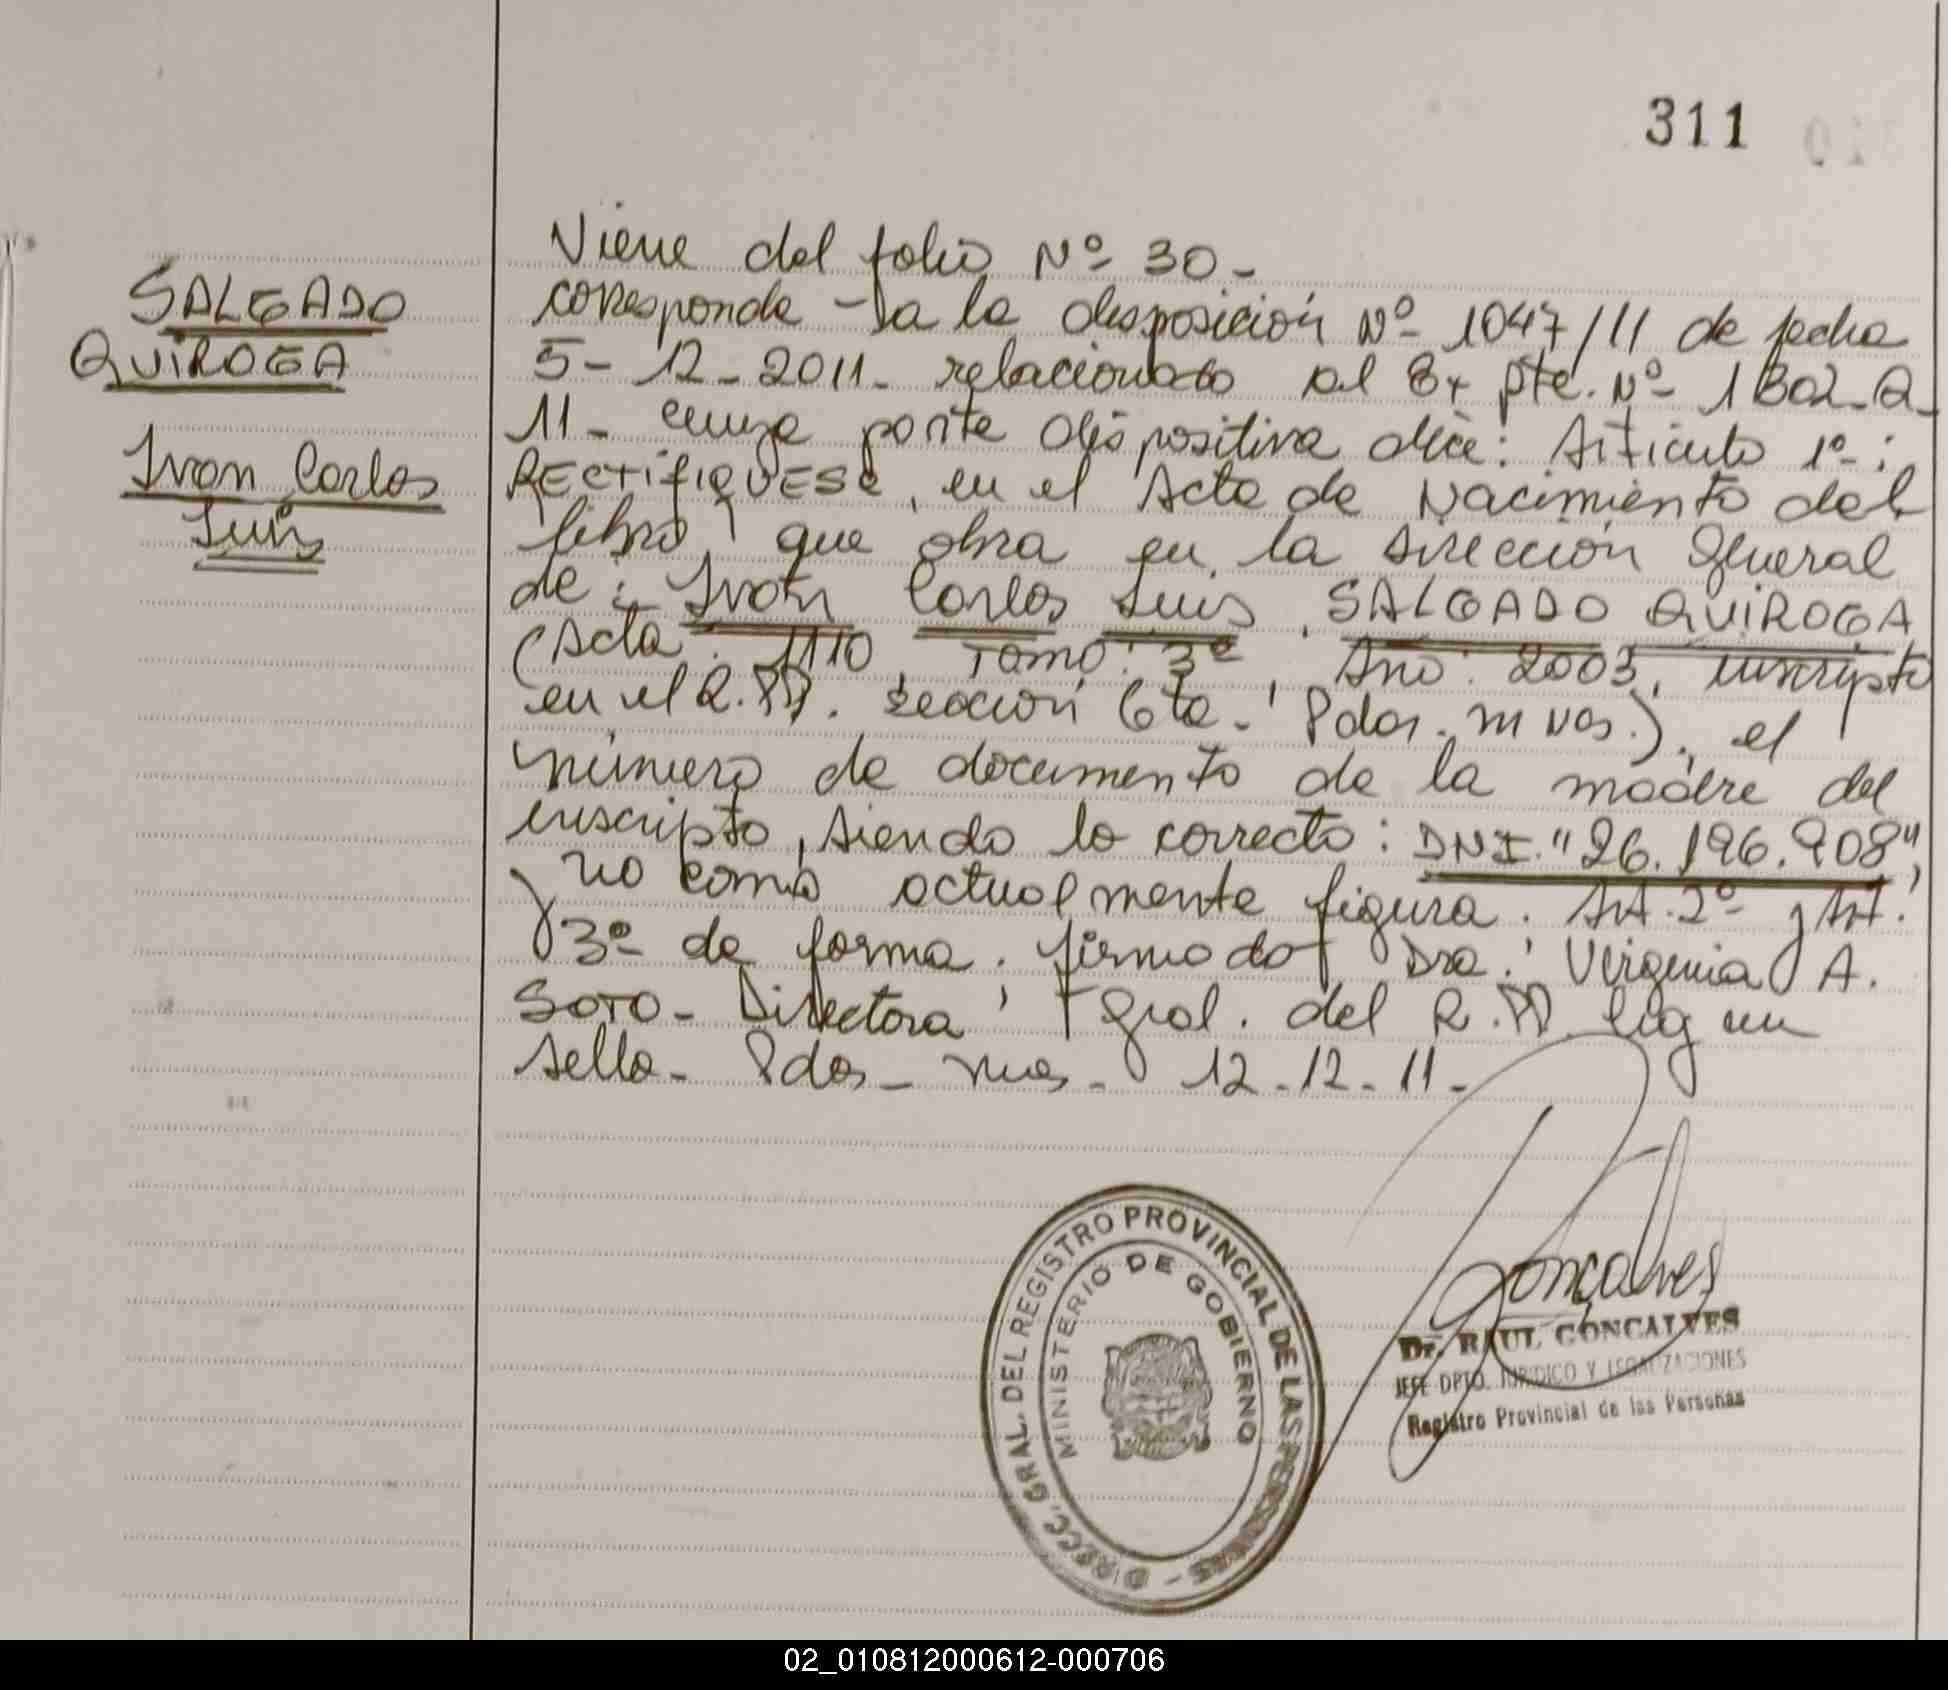 311
SALGADO
QUIROGA
Ivon Carlos
Luis
Viene del folio Nº 30-
corresponde - a la disposición Nº 1047/11 de fecha
5-12-2011- relacionado al Expte. Nº 1802-Q-
11- cuya parte dispositiva dice: Artículo 1º:
RECTIFIQUESE, en el Acta de Nacimiento del
libro que obra en la Dirección General
de: Ivon Carlos Luis SALGADO QUIROGA
(Acta: 1110, Tomo: 3º Año: 2003, inscripto
en el R.PP. sección 6ta- Pdas. mnas.), el
número de documento de la madre del
inscripto, siendo lo correcto: DNI. "26.196.908",
y no como actualmente figura. Art. 2º y Art.
3º de forma. firmado Dra. Virginia A.
SOTO- Directora Gral. del R.PP. hay un
sello- Pdas- mnas- 12-12-11-
DIRECC. GRAL. DEL REGISTRO PROVINCIAL DE LAS PERSONAS -
MINISTERIO DE GOBIERNO
Goncalves
Dr. RAUL GONCALVES
JEFE DPTO. JURIDICO Y LEGALIZACIONES
Registro Provincial de las Personas
02_010812000612-000706